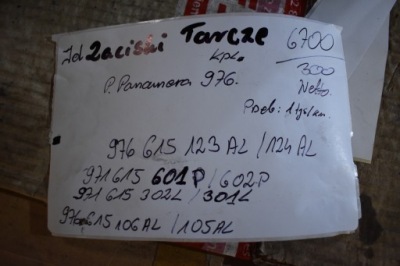 Zaciski Tarcze
kpl.
6700
300
Netto
P. Panamera 976.
976 615 123 AL / 124 AL
971 615 601P / 602P
971 615 302L / 301L
615 106 AL / 105 AL